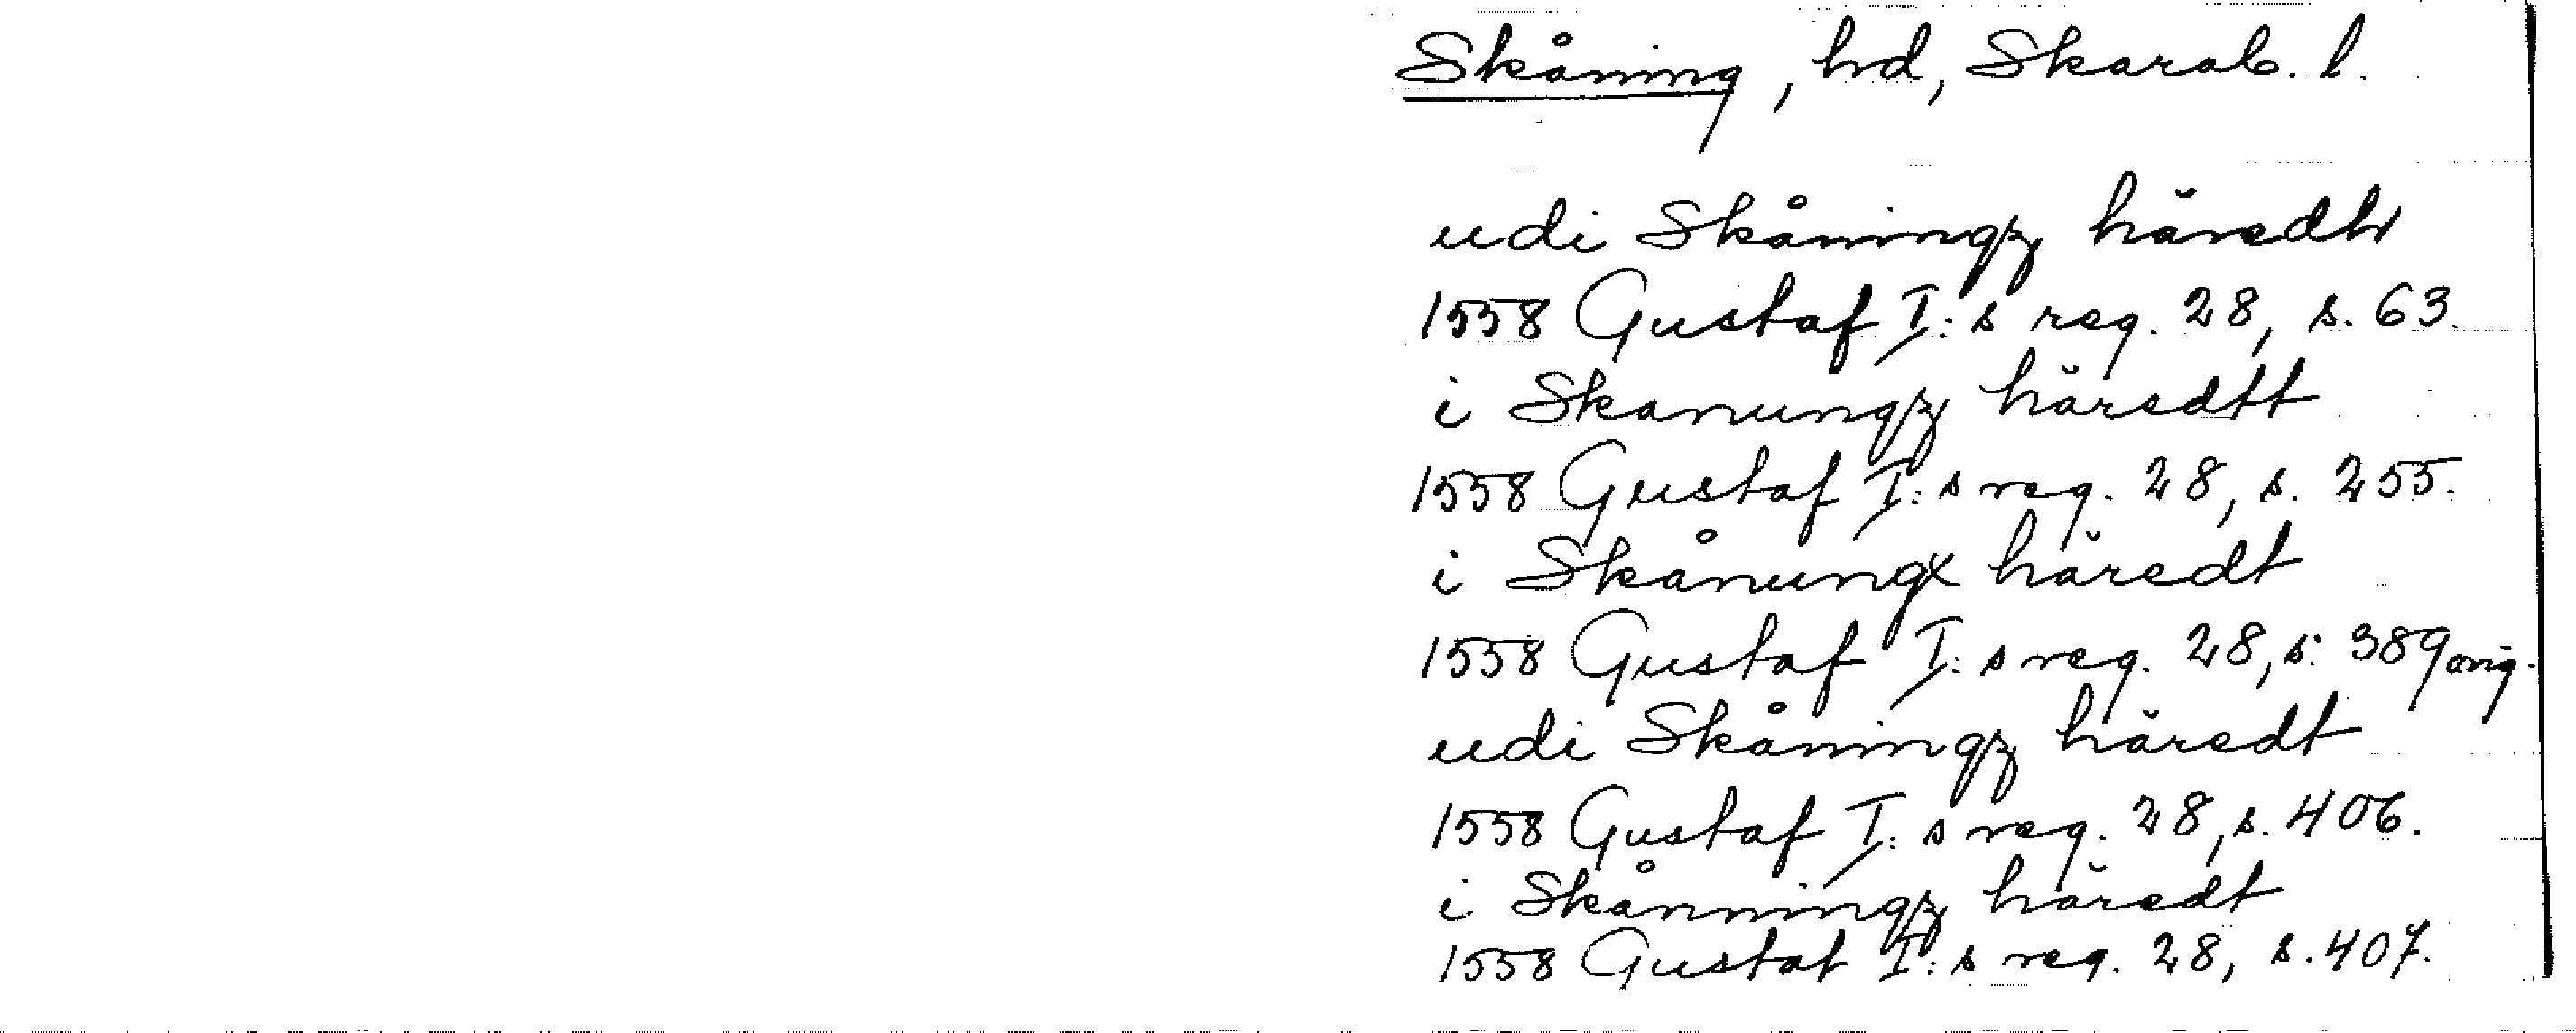 Skåning, hd, Skarab. l.
udi Skåningz häredh
1558 Gustaf I:s reg. 28, s. 63.
i Skanungz häredtt
1558 Gustaf I:s reg. 28, s. 255.
i Skånungx häredt
1558 Gustaf I:s reg. 28, s. 389 orig.
udi Skåningz häredt
1558 Gustaf I:s reg. 28, s. 406.
i Skånningz häredt
1558 Gustaf I:s reg. 28, s. 407.